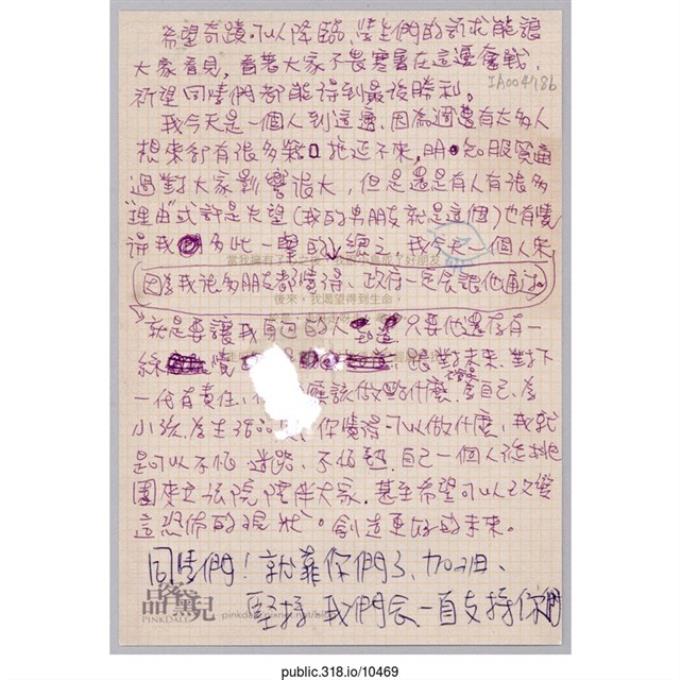 希望奇蹟可以降臨、學生們的訴求能讓
大家看見,看著大家不畏寒暑在這邊奮戰,
祈望同學們都能得到最後勝利。
IA004786
我今天是一個人到這邊、因為週邊有太多人
想來卻有很多 抱 不來,明 知服貿通
過對大家影響很大,但是還是有人有很多
"理由"或許是失望(我的男朋友就是這個)也有覺
得我 多此一舉的、總之、我今天一個人來
因為我很多朋友都覺得、政府一定會讓他通過
後來,我渴望得到生命,
就是要讓我身邊的人 只要他還存有一
絲 覺 跟對未來、對下
一代有責任、 應該做點什麼、為自己、為
小孩、為生活品 你覺得可以做什麼、我就
是可以不怕迷路、不怕熱、自己一個人從桃
園來立法院陪伴大家、甚至希望可以改變
這恐怖的現狀。創造更好的未來。
同學們!就靠你們了、加油、
堅持 我們會一直支持你們
品客黛兒
PINKDALE
public.318.io/10469